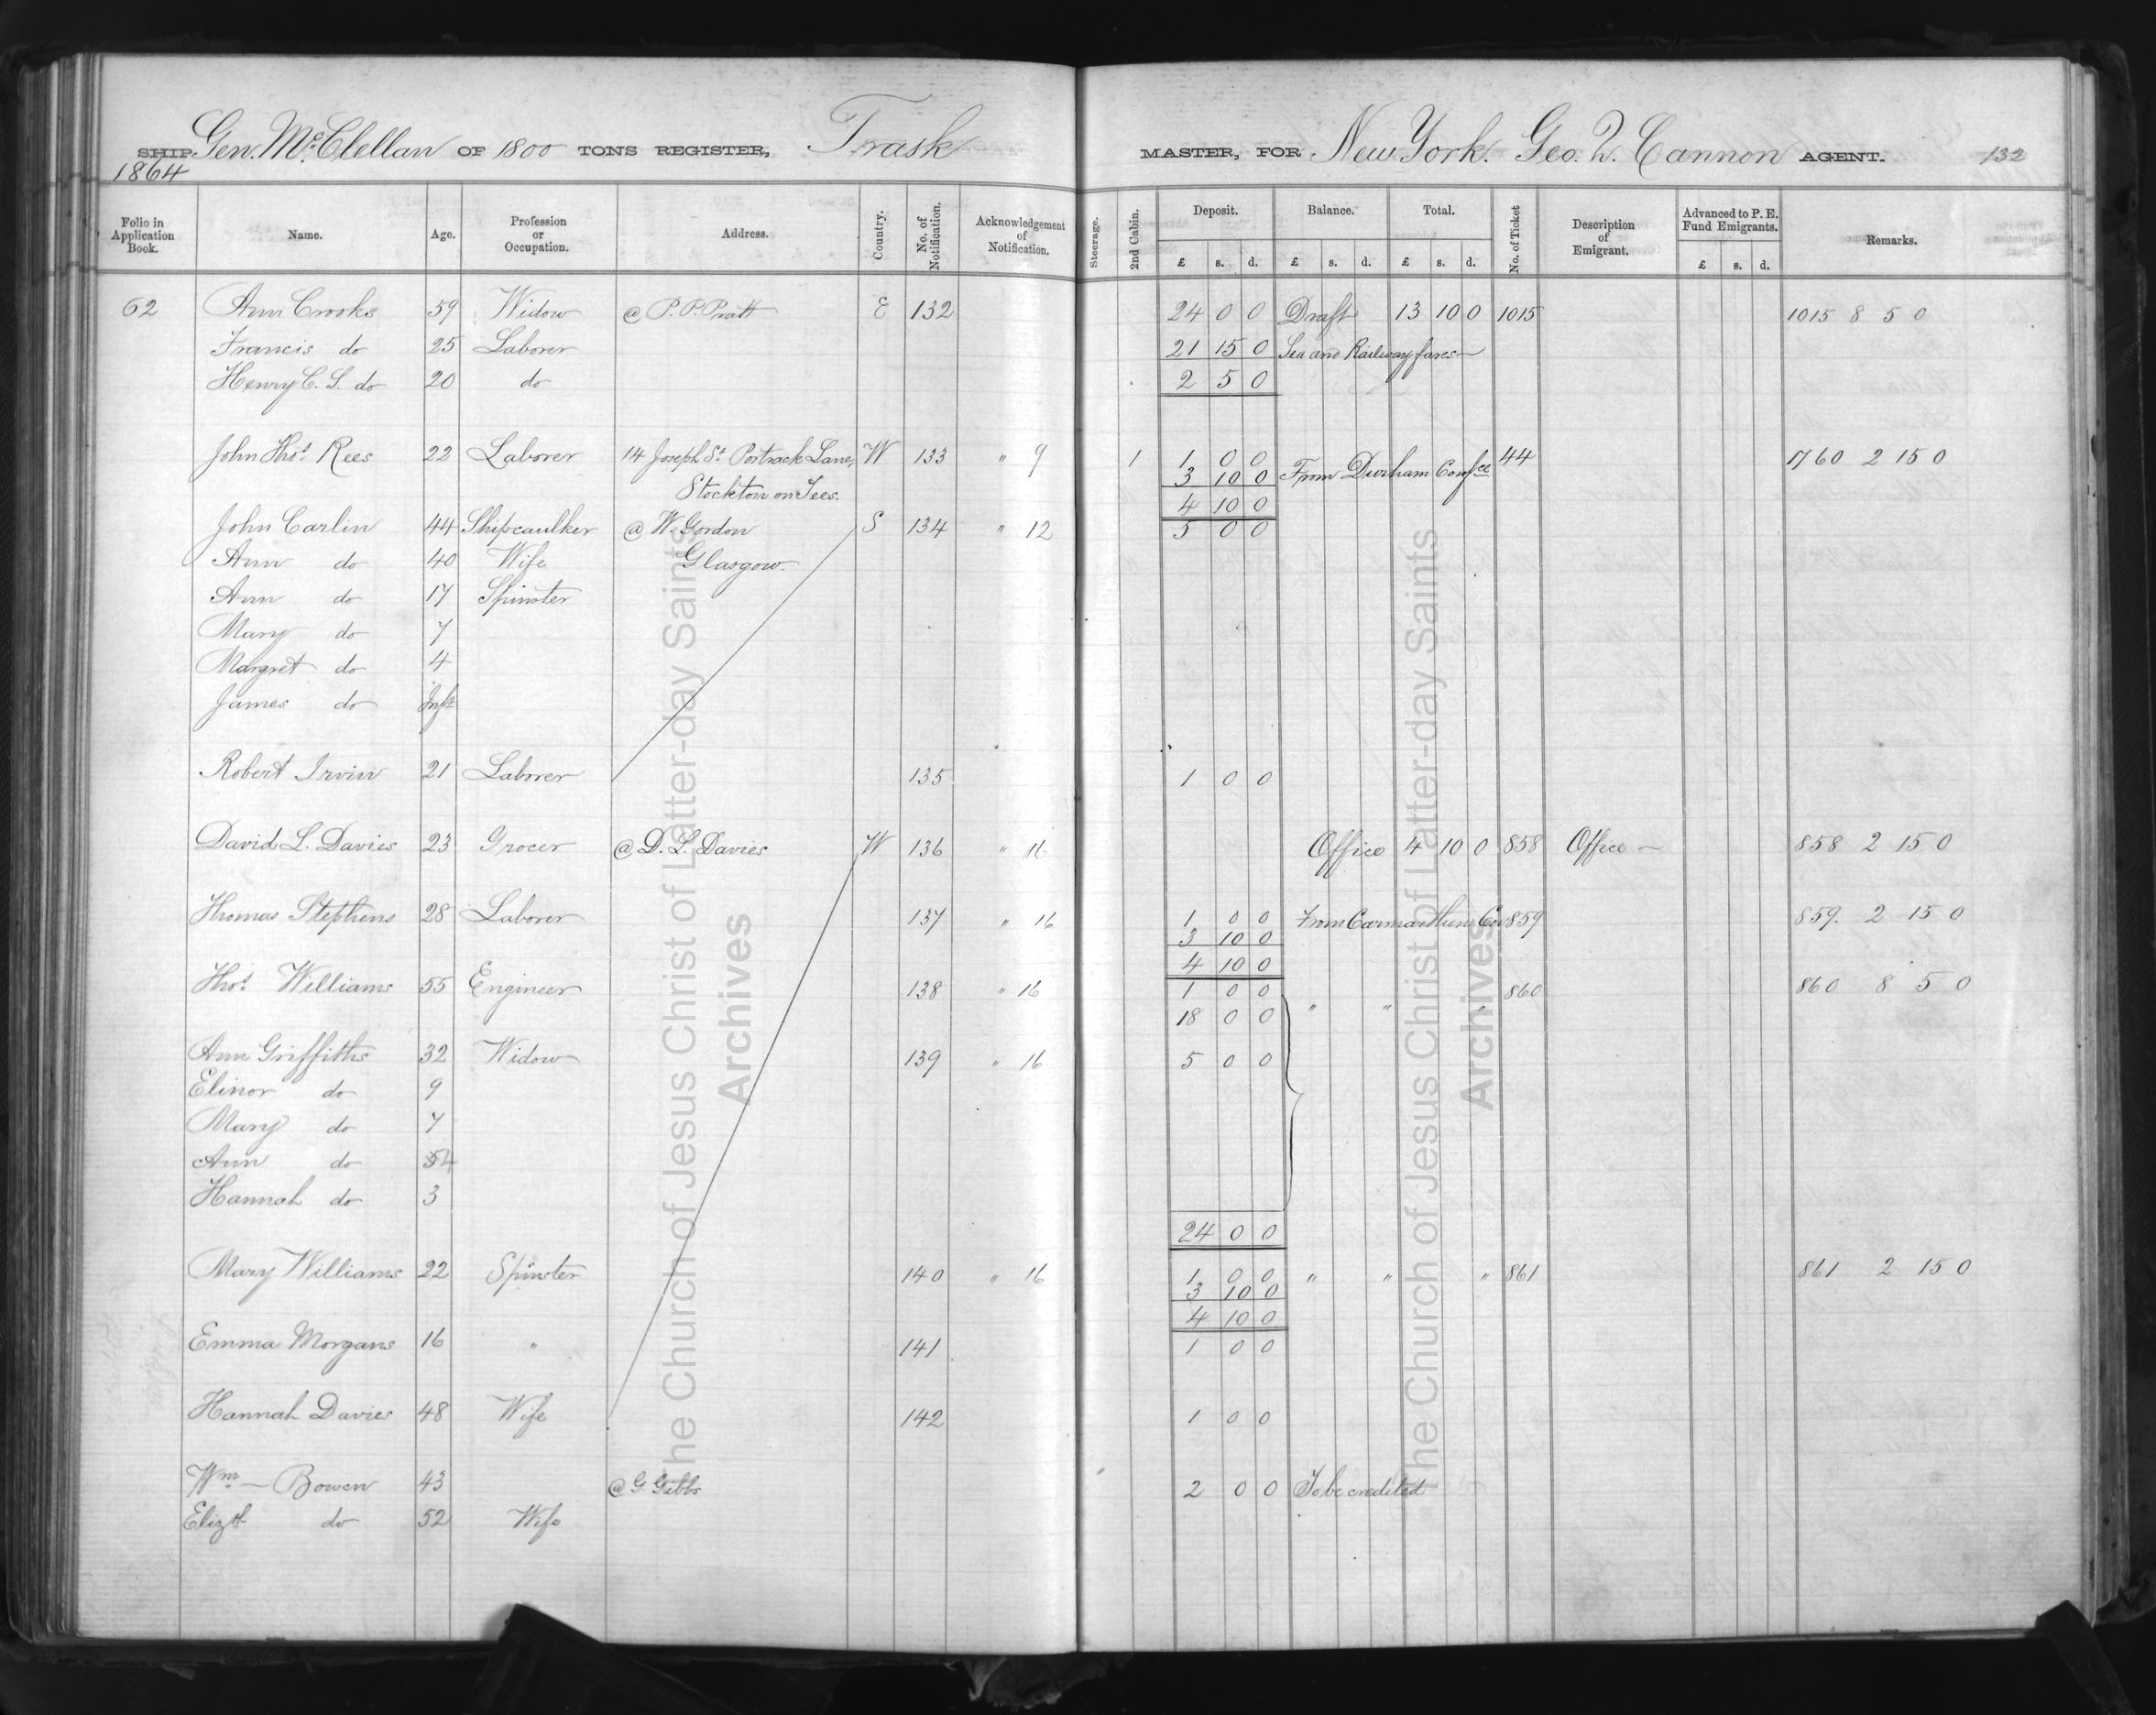 SHIP Gen. McClellan OF 1800 TONS REGISTER, Trask MASTER, FOR New York. Geo. Q. Cannon AGENT. 132
1864
Folio in Application Book. Name. Age. Profession or Occupation. Address. Country. No. of Notification. Acknowledgement of Notification. Steerage. 2nd Cabin. Deposit. £ s. d. Balance. £ s. d. Total. £ s. d. No. of Ticket Description of Emigrant. Advanced to P. E. Fund Emigrants. £ s. d. Remarks.
62 Ann Crooks 59 Widow @ P. P. Pratt E 132 24 0 0 Draft 13 10 0 1015 1015 8 5 0
Francis do 25 Laborer 21 15 0 Sea and Railway fares
Henry C. S. do 20 do 2 5 0
John Thos. Rees 22 Laborer 14 Joseph St. Portrack Lane, W 133 " 9 1 1 0 0 44 1760 2 15 0
Stockton on Tees. 3 10 0 From Durham Confce
4 10 0
John Carlin 44 Shipcaulker @ W. Gordon S 134 " 12 5 0 0
Ann do 40 Wife Glasgow.
Ann do 17 Spinster
Mary do 7
Margret do 4
James do Inft
Robert Irvin 21 Laborer 135 1 0 0
David L. Davies 23 Grocer @ D. L. Davies W 136 " 16 Office 4 10 0 858 Office 858 2 15 0
Thomas Stephens 28 Laborer 137 " 16 1 0 0 From Carmarthen Co 859 859. 2 15 0
3 10 0
4 10 0
Thos. Williams 55 Engineer 138 " 16 1 0 0 " " 860 860 8 5 0
18 0 0
Ann Griffiths 32 Widow 139 " 16 5 0 0
Elinor do 9
Mary do 7
Ann do 54
Hannah do 3
24 0 0
Mary Williams 22 Spinster 140 " 16 1 0 0 " " " 861 861 2 15 0
3 10 0
4 10 0
Emma Morgans 16 " 141 1 0 0
Hannah Davies 48 Wife 142 1 0 0
Wm. Bowen 43 @ G. Gibbs 2 0 0 To be credited
Elizth do 52 Wife
The Church of Jesus Christ of Latter-day Saints
Archives
The Church of Jesus Christ of Latter-day Saints
Archives